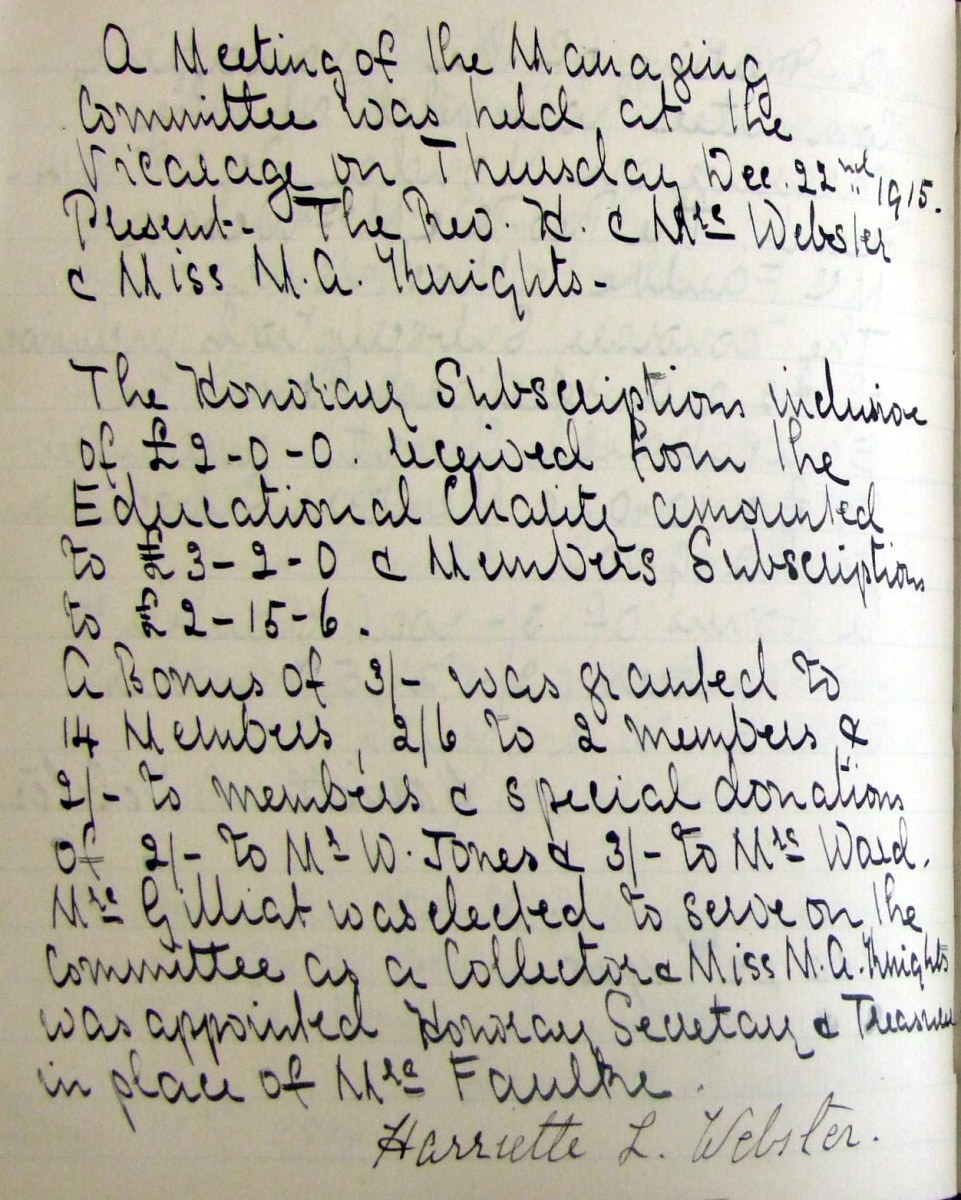 A Meeting of the Managing
Committee was held at the
Vicarage on Thursday Dec. 22nd 1915.
Present - The Rev. H. & Mrs Webster
& Miss M.A. Knights -
The Honoray Subscriptions inclusive
of £2-0-0. received from the
Educational Charity amounted
to £3-2-0 & Members Subscriptions
to £2-15-6.
A Bonus of 3/- was granted to
14 Members, 2/6 to 2 members &
2/- to members & special donations
of 2/- to Mr W. Jones & 3/- to Mrs Ward.
Mrs Gilliat was elected to serve on the
Committee as a Collector & Miss M.A. Knights
was appointed Honoray Secretary & Treasurer
in place of Mrs Faulke.
Harriette L. Webster.